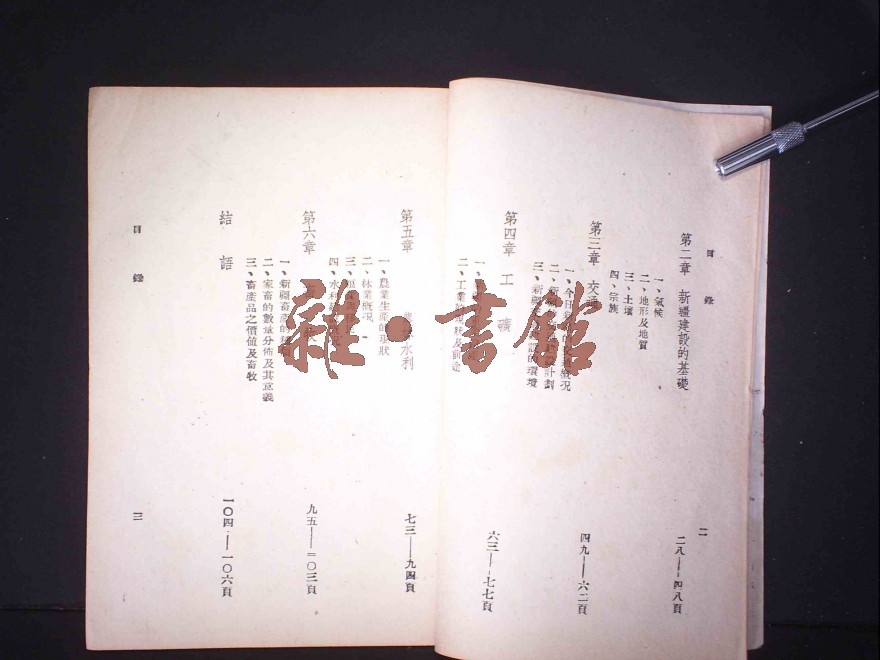 目錄
二
第二章 新疆建設的基礎
一、氣候
二、地形及地質
三、土壤
四、宗族
二八——四八頁
第三章 交通
一、今日
概況
二、新
計劃
三、新疆
的環境
四九——六二頁
第四章 工礦
一、
二、工業的現狀及前途
六三——七七頁
第五章
水利
一、農業生產的現狀
二、林業概況
三、
四、水利
七三——九四頁
第六章
一、新疆畜產的
二、家畜的數量分佈及其意義
三、畜產品之價值及畜牧
九五——一〇三頁
結語
一〇四——一〇六頁
目錄
三
雜·書館